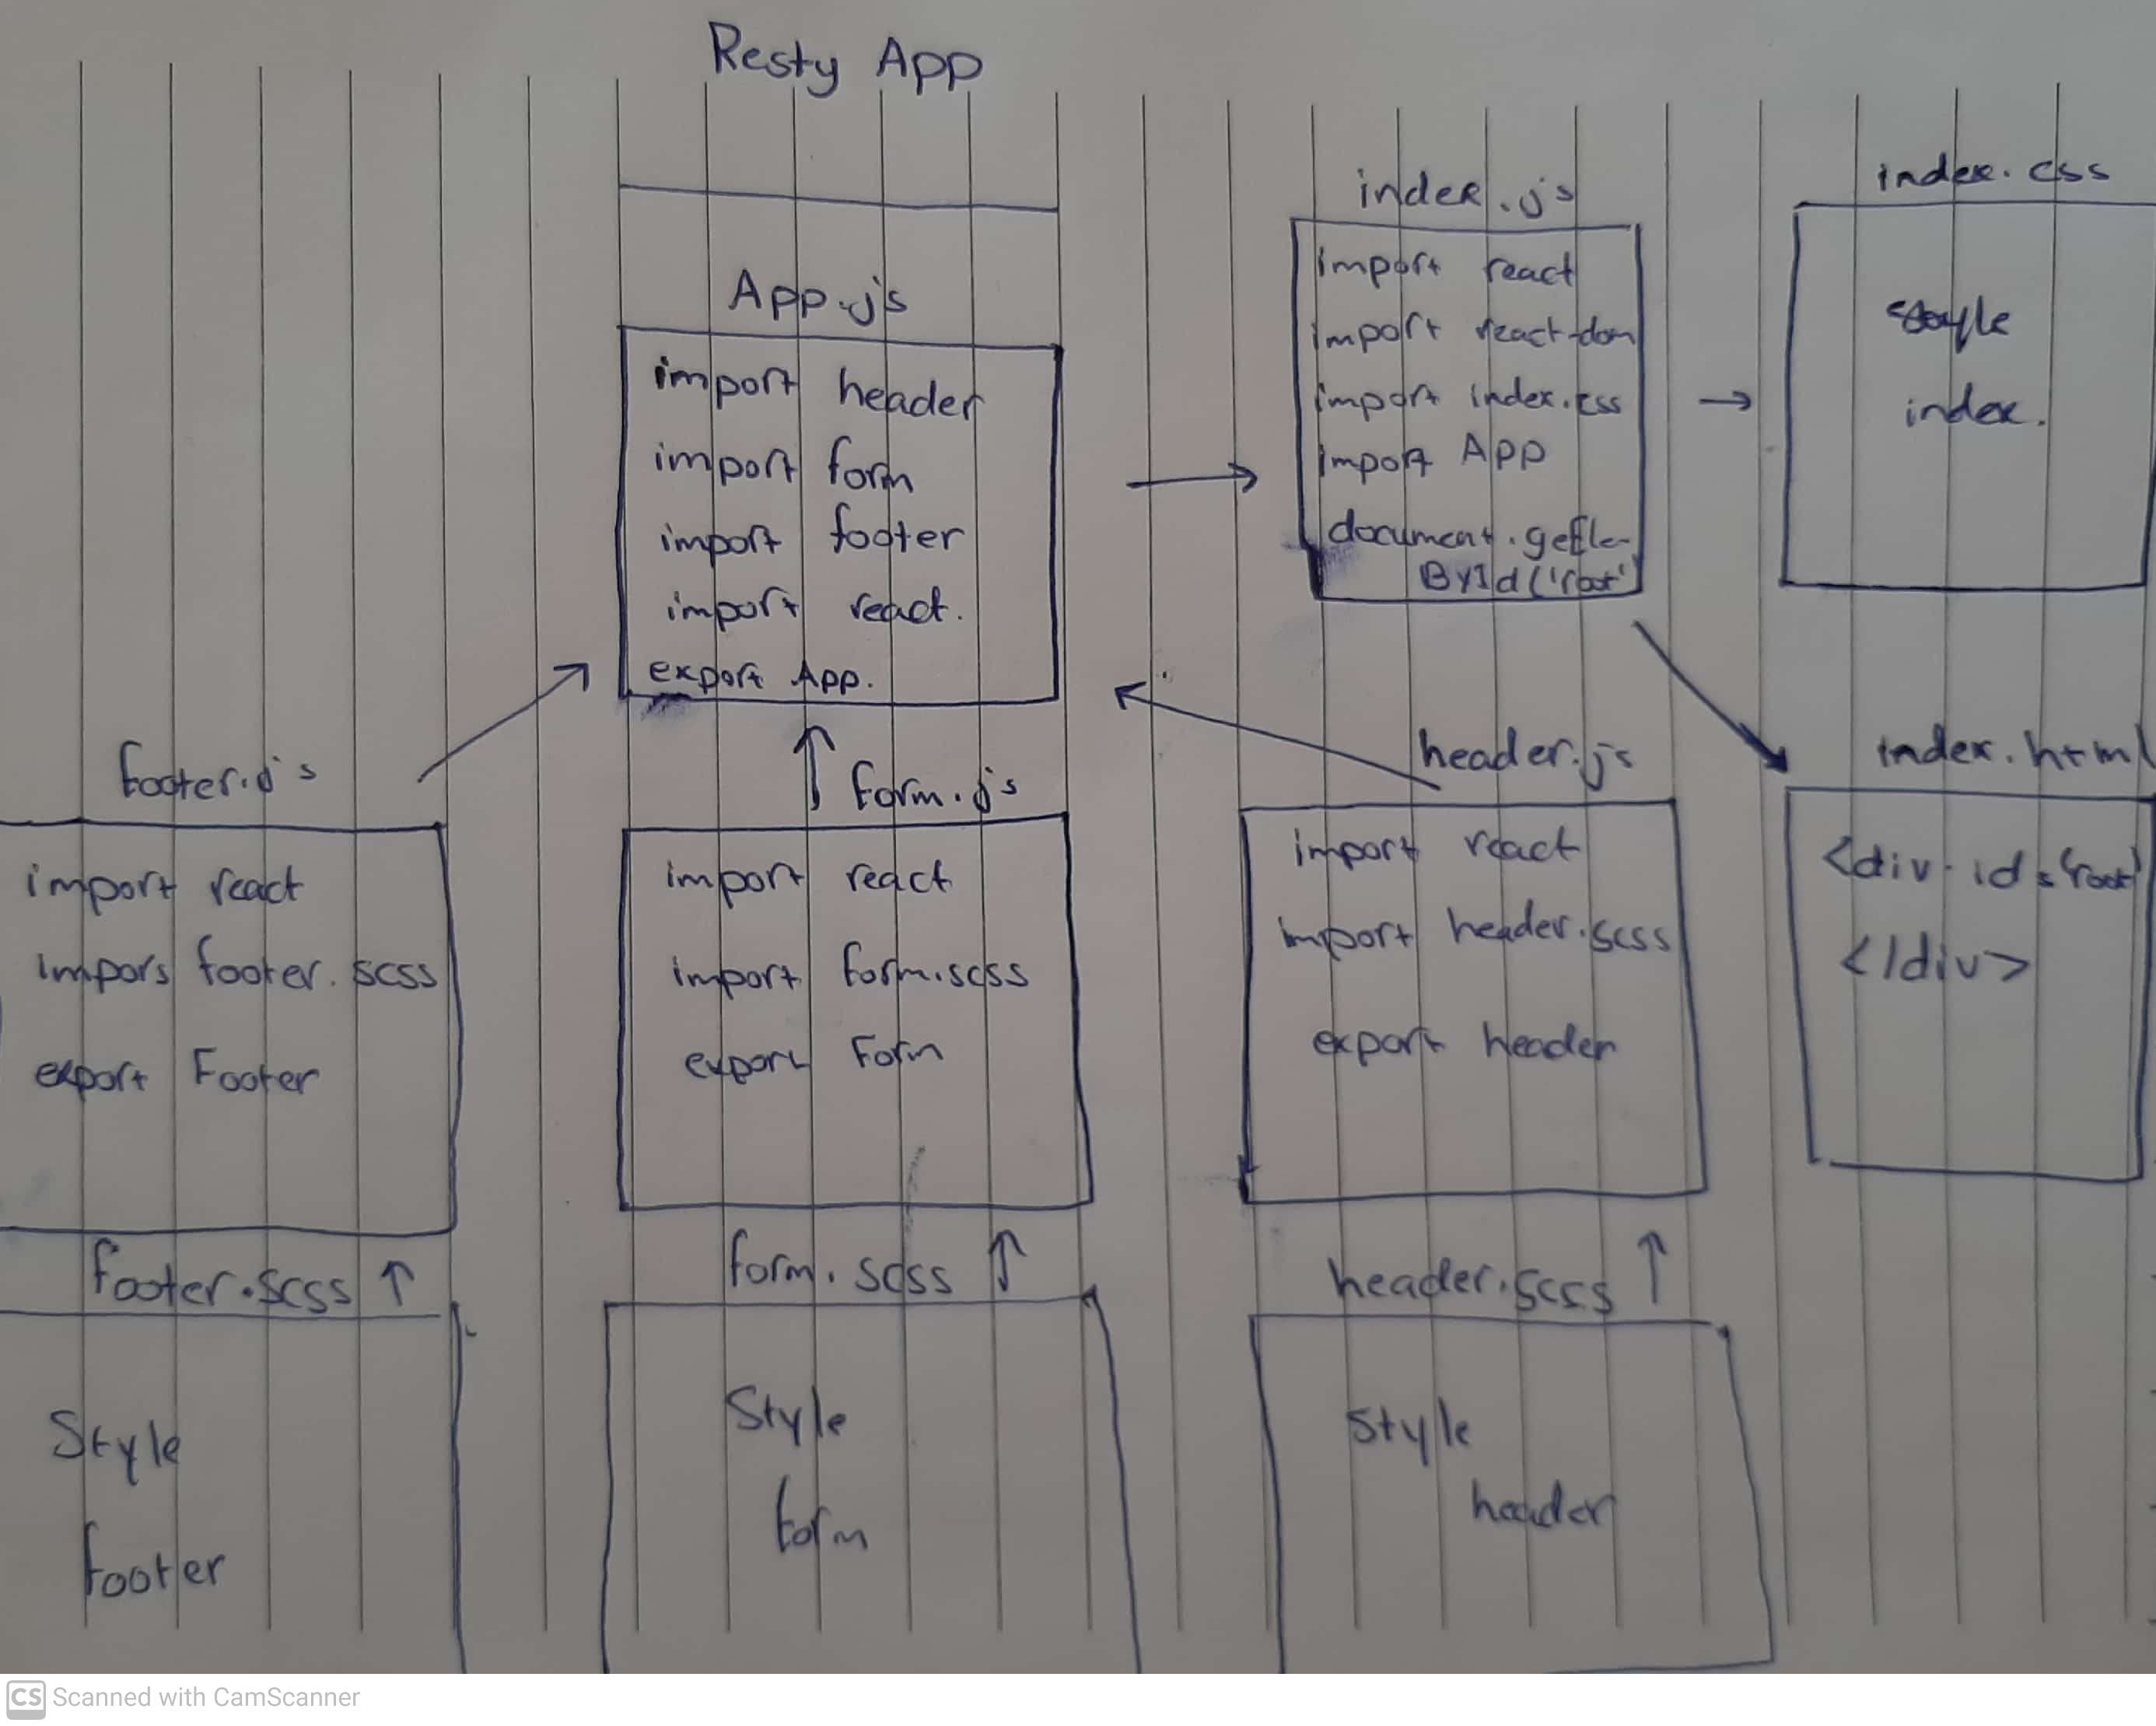 Resty App
App.js
import header
import form
import footer
import react.
export App.
index.js
import react
import react-dom
import index.css
import App
document.getEle-
ById('root')
index.css
style
index.
footer.js
import react
impors footer.scss
export Footer
form.js
import react
import form.scss
export Form
header.js
import react
import header.scss
export header
index.html
<div id='root'
</div>
footer.scss
Style
footer
form.scss
Style
form
header.scss
Style
header
CS Scanned with CamScanner